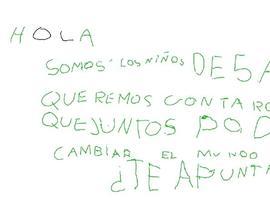 HOLA
SOMOS LOS NIÑOS DE 5 A
QUEREMOS CONTARO
QUE JUNTOS POD
CAMBIAR EL MUNDO
¿TE APUNT